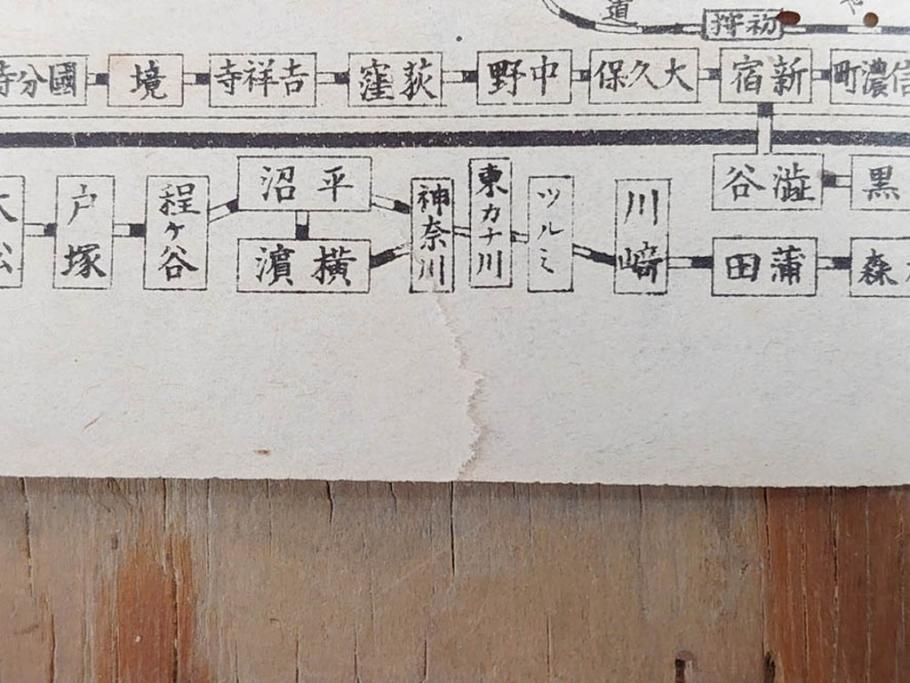 道
初狩
信濃町
新宿
大久保
中野
荻窪
吉祥寺
境
國分寺
黒
澁谷
森
蒲田
川﨑
ツルミ
東カナ川
神奈川
平沼
橫濱
程ヶ谷
戸塚